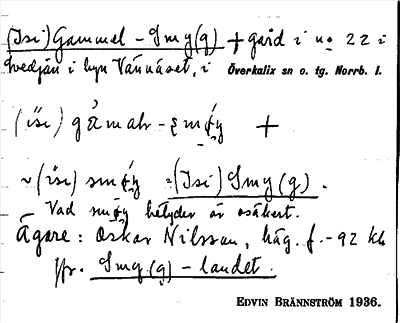 (Isi) Gammel-Smy(g) + gård i no 22 i
Svedjan i byn Vännäset, i Överkalix sn o. tg. Norrb. l.
(i̯si) gàmah-
~ (isi) smǿy = (Isi) Smy(g).
Vad smǿy betyder är osäkert.
Ägare: Oskar Nilsson, häg. f. -92 kk
jfr. Smy(g)-landet.
EDVIN BRÄNNSTRÖM 1936.